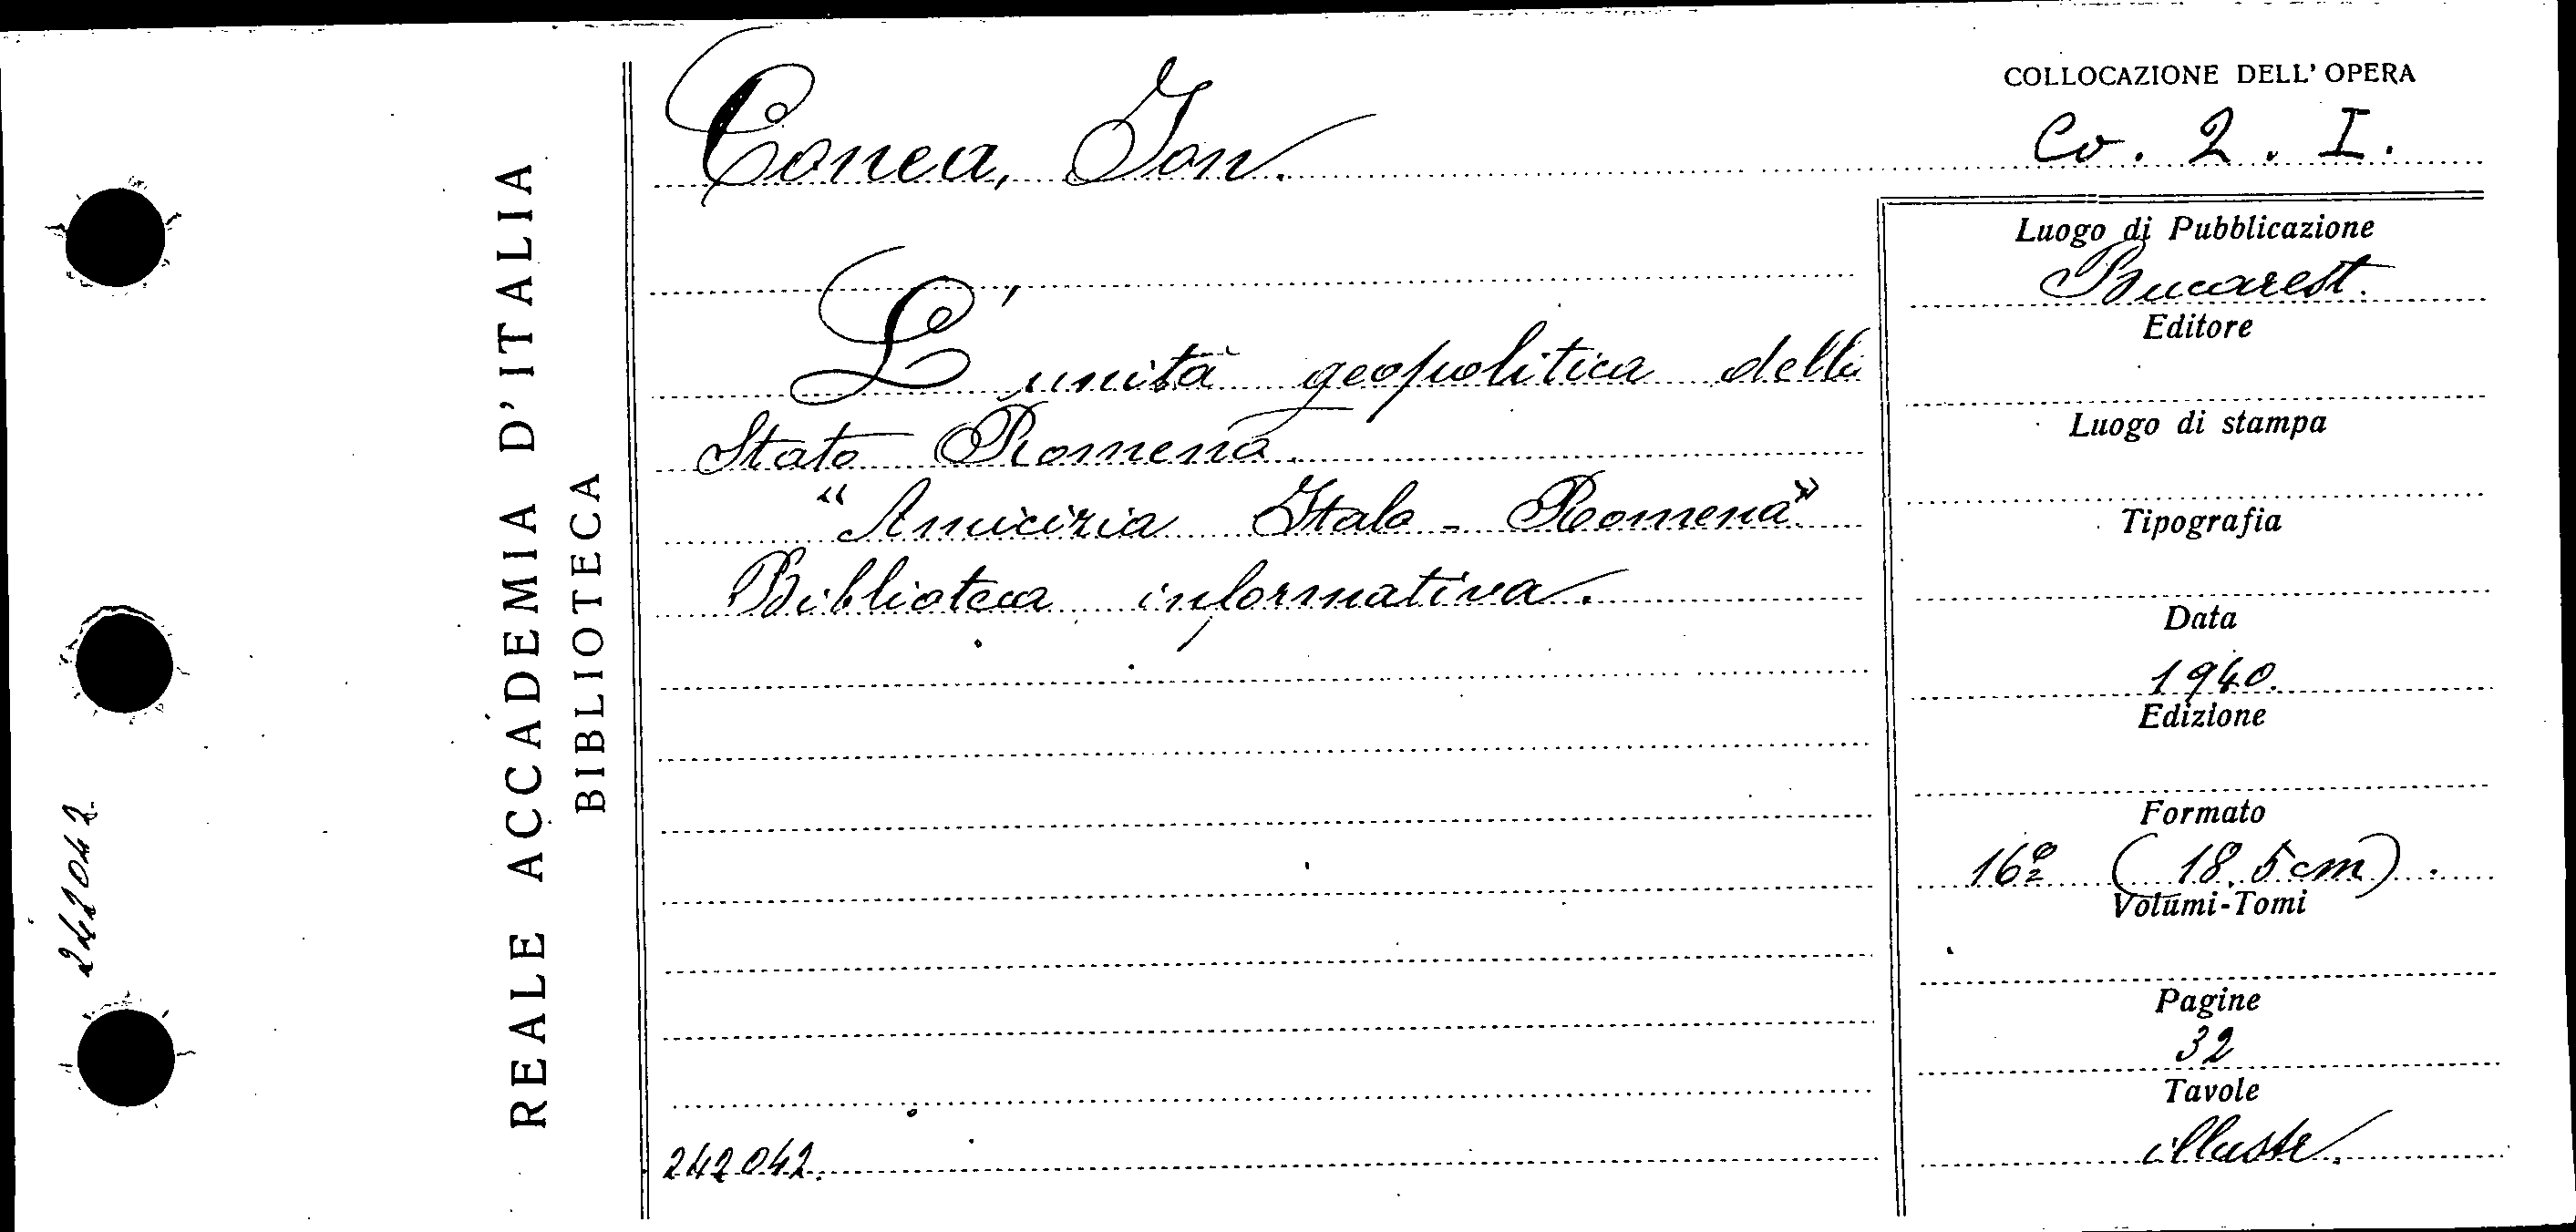 COLLOCAZIONE DELL' OPERA
Conea, Ion.
Co. 2. I.
L'unità geopolitica dello
Stato Romeno.
"Amicizia Italo-Romena"
Biblioteca informativa.
Luogo di Pubblicazione
Bucarest.
Editore
Luogo di stampa
Tipografia
Data
1940.
Edizione
Formato
16º (18,5 cm).
Volumi-Tomi
Pagine
32
Tavole
illustr.
242042.
REALE ACCADEMIA D'ITALIA
BIBLIOTECA
242042